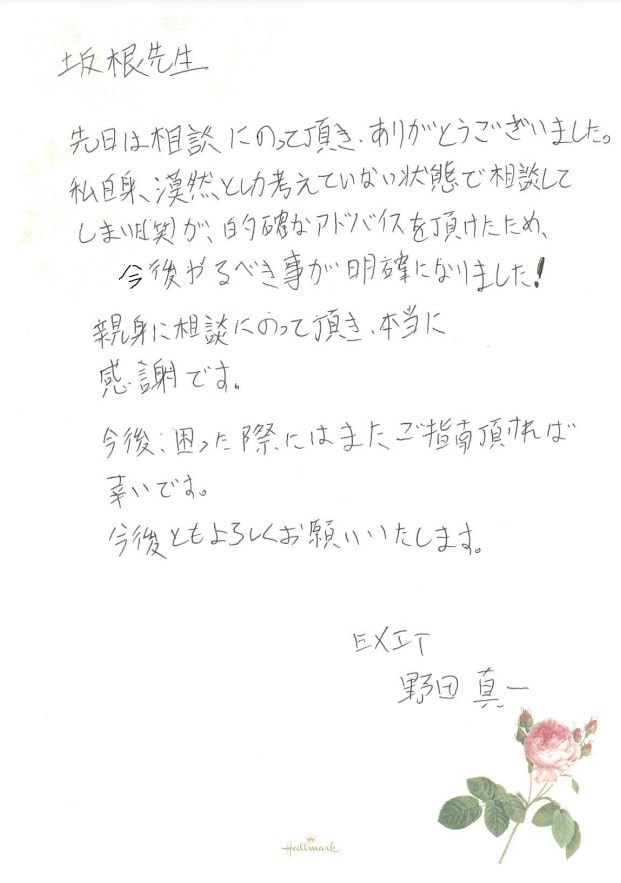 坂根先生
先日は相談にのって頂き、ありがとうございました。
私自身、漠然としか考えていない状態で相談して
しまいた(笑)が、的確なアドバイスを頂けたため、
今後やるべき事が明確になりました!
親身に相談にのって頂き、本当に
感謝です。
今後、困った際にはまたご指南頂ければ
幸いです。
今後ともよろしくお願いいたします。
EXIT
野田 真一
Hallmark